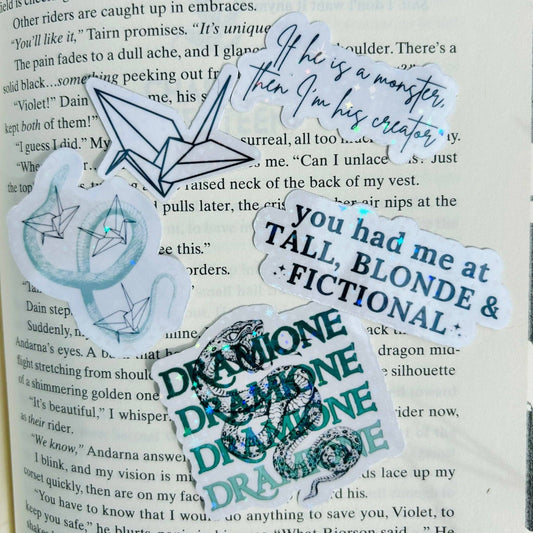 Other riders are caught up in embraces.
"You'll like it," Tairn promises. "It's unique
The pain fades to a dull ache, and I glance shoulder. There's a
solid black…something peeking out
"Violet!" Dain his
kept both of them!"
"I guess I did." My surreal, all too
me. "Can I unlace Just
the top raised neck of the back of my vest.
pulls later, the air nips at the
If he is a monster,
then I'm his creator
you had me at
TALL, BLONDE &
FICTIONAL
DRAMIONE
DRAMIONE
DRAMIONE
DRAMIONE
see this."
orders.
Dain
Suddenly,
Andarna's eyes. A dragon mid-
flight stretching from silhouette
of a shimmering golden one
"It's beautiful," I whisper rider now,
as their rider.
"We know," Andarna
I blink, and my vision is lace up my
corset quickly, then are on my his.
"You have to know that I would do anything to save you, Violet, to
keep you safe," he blurts, "What Riorson said…" He